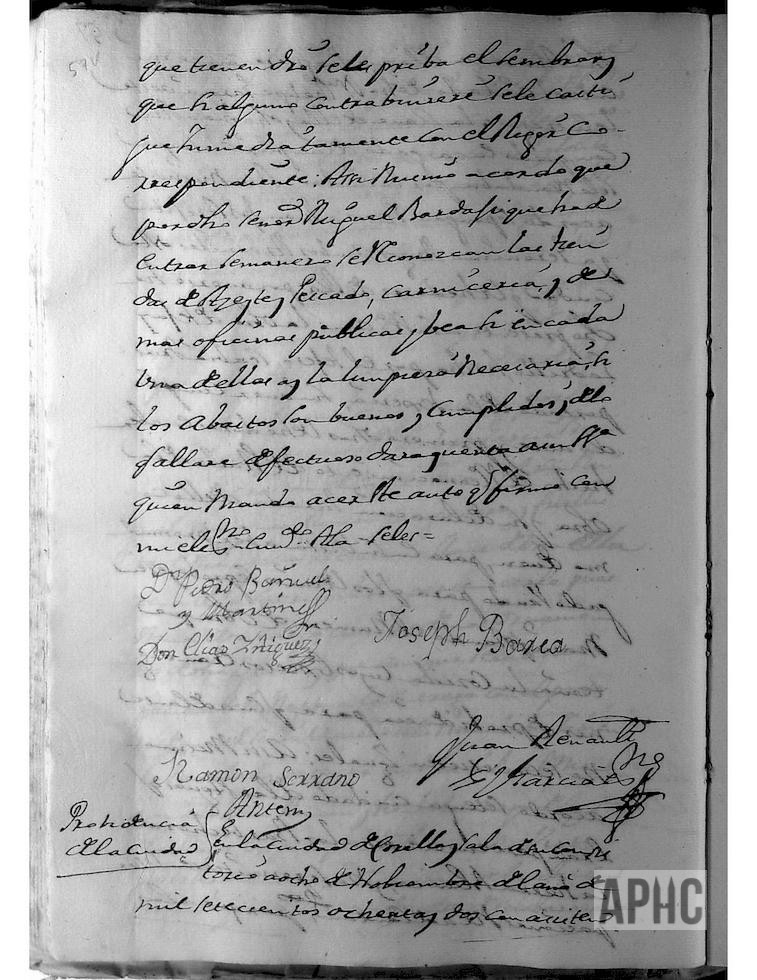 que tienen dro se les priba el sembrar, y
que si alguno contrabiniere se le casti
gue Inmediatamente con el Rigor Co-
rrespondiente: Assi mismo acordo que
por dho senor Miguel Bardaji que ha de
entrar semanero se Reconozcan las tien
das de Azeyte y Pescado, carniceria, y de
mas oficinas publicas y bea si en cada
Una de ellas ay la limpieza Necesaria, si
los Abastos son buenos y Cumplidos, y de lo
fallare defectuoso dara quenta a su
quien mando acer este auto y firmo con
mi el
Dn Pedro Bañuel
y Martinez
Don Elias Yñiguez
Joseph Barea
Juan Renault
y Garcia
Ramon Serrano
Antemi
Probidencia
de la ciudad
En la ciudad de Corella y sala de su Consis
torio a ocho de Nobiembre del ano de
mil setecientos ochenta y dos con asisten
APHC